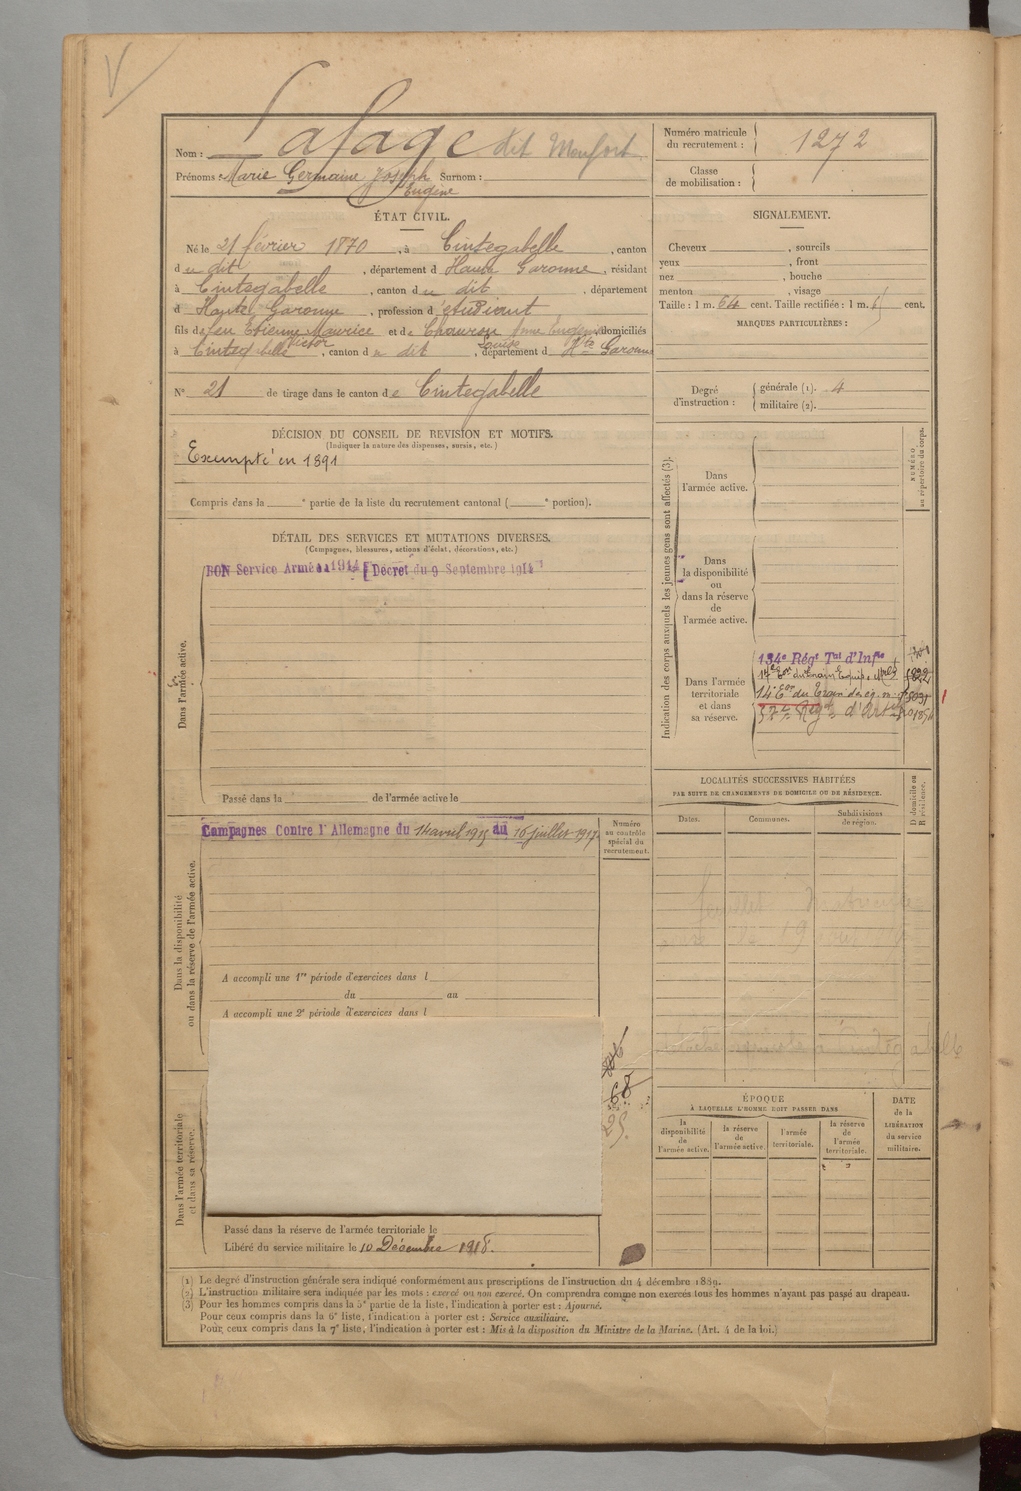 Nom : Lafage dit Monfort
Prénoms : Marie Germaine Joseph Surnom :
Eugène
Numéro matricule
du recrutement : 1272
Classe
de mobilisation :
ÉTAT CIVIL.
Né le 21 février 1870, à Cintegabelle, canton
du dit, département d Haute Garonne, résidant
à Cintegabelle, canton du dit, département
d Haute Garonne, profession d'étudiant
fils de feu Etienne Maurice et de Chauron domiciliés
Victor Louise
à Cintegabelle, canton du dit, département d Hte Garonne
N° 21 de tirage dans le canton de Cintegabelle
SIGNALEMENT.
Cheveux , sourcils
yeux , front
nez , bouche
menton , visage
Taille : 1 m. 64 cent. Taille rectifiée : 1 m. cent.
MARQUES PARTICULIÈRES :
Degré
d'instruction :
générale (1). 4
militaire (2).
DÉCISION DU CONSEIL DE REVISION ET MOTIFS.
(Indiquer la nature des dispenses, sursis, etc.)
Exempté en 1891
Compris dans la e partie de la liste du recrutement cantonal ( e portion).
DÉTAIL DES SERVICES ET MUTATIONS DIVERSES.
(Campagnes, blessures, actions d'éclat, décorations, etc.)
BON Service Armé 1914 [Décret du 9 Septembre 1914
Dans l'armée active.
Passé dans la de l'armée active le
Indication des corps auxquels les jeunes gens sont affectés (3).
NUMÉRO
au répertoire du corps.
Dans
l'armée active.
Dans
la disponibilité
ou
dans la réserve
de
l'armée active.
Dans l'armée
territoriale
et dans
sa réserve.
134e Régt Tal d'Infie
14e Eon du Train
14e Eon du Train des éq.
Régt d'Art
LOCALITÉS SUCCESSIVES HABITÉES
PAR SUITE DE CHANGEMENTS DE DOMICILE OU DE RÉSIDENCE.
D domicile ou
R résidence.
Dates.
Communes.
Subdivisions
de région.
Campagnes Contre l'Allemagne du 14 avril 1915 au 16 juillet 1917
Numéro
au contrôle
spécial du
recrutement.
Dans la disponibilité
ou dans la réserve de l'armée active.
A accompli une 1re période d'exercices dans l
du au
A accompli une 2e période d'exercices dans l
68
25.
ÉPOQUE
À LAQUELLE L'HOMME DOIT PASSER DANS
DATE
de la
LIBÉRATION
du service
militaire.
la
disponibilité
de
l'armée active.
la réserve
de
l'armée active.
l'armée
territoriale.
la réserve
de
l'armée
territoriale.
Dans l'armée territoriale
et dans sa réserve.
Passé dans la réserve de l'armée territoriale le
Libéré du service militaire le 10 Décembre 1918.
(1) Le degré d'instruction générale sera indiqué conformément aux prescriptions de l'instruction du 4 décembre 1889.
(2) L'instruction militaire sera indiquée par les mots : exercé ou non exercé. On comprendra comme non exercés tous les hommes n'ayant pas passé au drapeau.
(3) Pour les hommes compris dans la 5e partie de la liste, l'indication à porter est : Ajourné.
Pour ceux compris dans la 6e liste, l'indication à porter est : Service auxiliaire.
Pour ceux compris dans la 7e liste, l'indication à porter est : Mis à la disposition du Ministre de la Marine. (Art. 4 de la loi.)